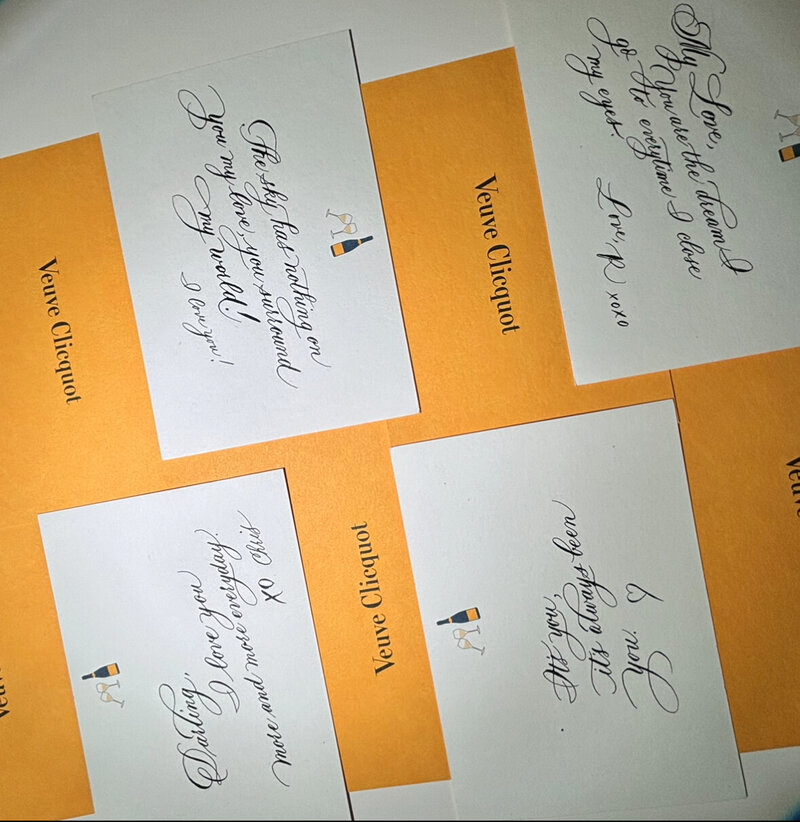 My Love,
You are the dream I
go to everytime I close
my eyes.
Love, R xoxo
The sky has nothing on
you my love, you surround
my world!
Darling,
I love you
more and more everyday!
XO Chris
It's you,
it's always been
You. ♡
Veuve Clicquot
Veuve Clicquot
Veuve Clicquot